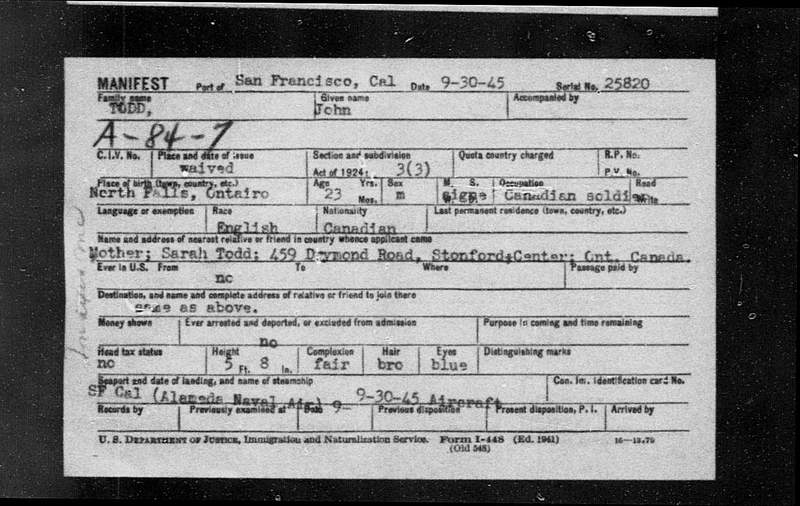 MANIFEST Port of San Francisco, Cal Date 9-30-45 Serial No. 25820
Family name Given name Accompanied by
TODD, John
A-84-7
C.I.V. No. Place and date of issue Section and subdivision Quota country charged R.P. No.
waived Act of 1924: 3(3) P.V. No.
Place of birth (town, country, etc.) Age Yrs. Sex M. S. Occupation Read
North Falls, Ontairo 23 Mos. m Canadian soldier Write
Language or exemption Race Nationality Last permanent residence (town, country, etc.)
English Canadian
Name and address of nearest relative or friend in country whence applicant came
Mother; Sarah Todd; 459 Road, Center; Ont. Canada.
Ever in U.S. From To Where Passage paid by
no
Destination, and name and complete address of relative or friend to join there
same as above.
Money shown Ever arrested and deported, or excluded from admission Purpose in coming and time remaining
no
Head tax status Height Complexion Hair Eyes Distinguishing marks
no 5 Ft. 8 In. fair bro blue
Seaport and date of landing, and name of steamship Can. Im. Identification card No.
SF Cal (Alameda Naval Air) 9- 9-30-45 Aircraft
Records by Previously examined at Date Previous disposition Present disposition, P. I. Arrived by
U. S. DEPARTMENT OF JUSTICE, Immigration and Naturalization Service. Form I-448 (Ed. 1941) 16—13,79
(Old 548)